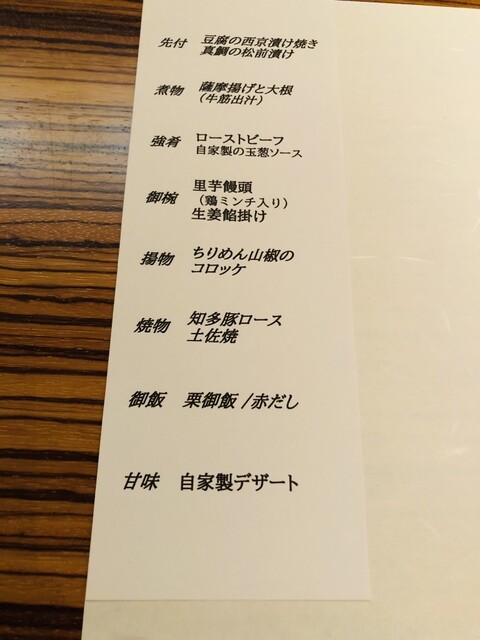 先付 豆腐の西京漬け焼き
真鯛の松前漬け
煮物 薩摩揚げと大根
（牛筋出汁）
強肴 ローストビーフ
自家製の玉葱ソース
御椀 里芋饅頭
（鶏ミンチ入り）
生姜餡掛け
揚物 ちりめん山椒の
コロッケ
焼物 知多豚ロース
土佐焼
御飯 栗御飯 /赤だし
甘味 自家製デザート